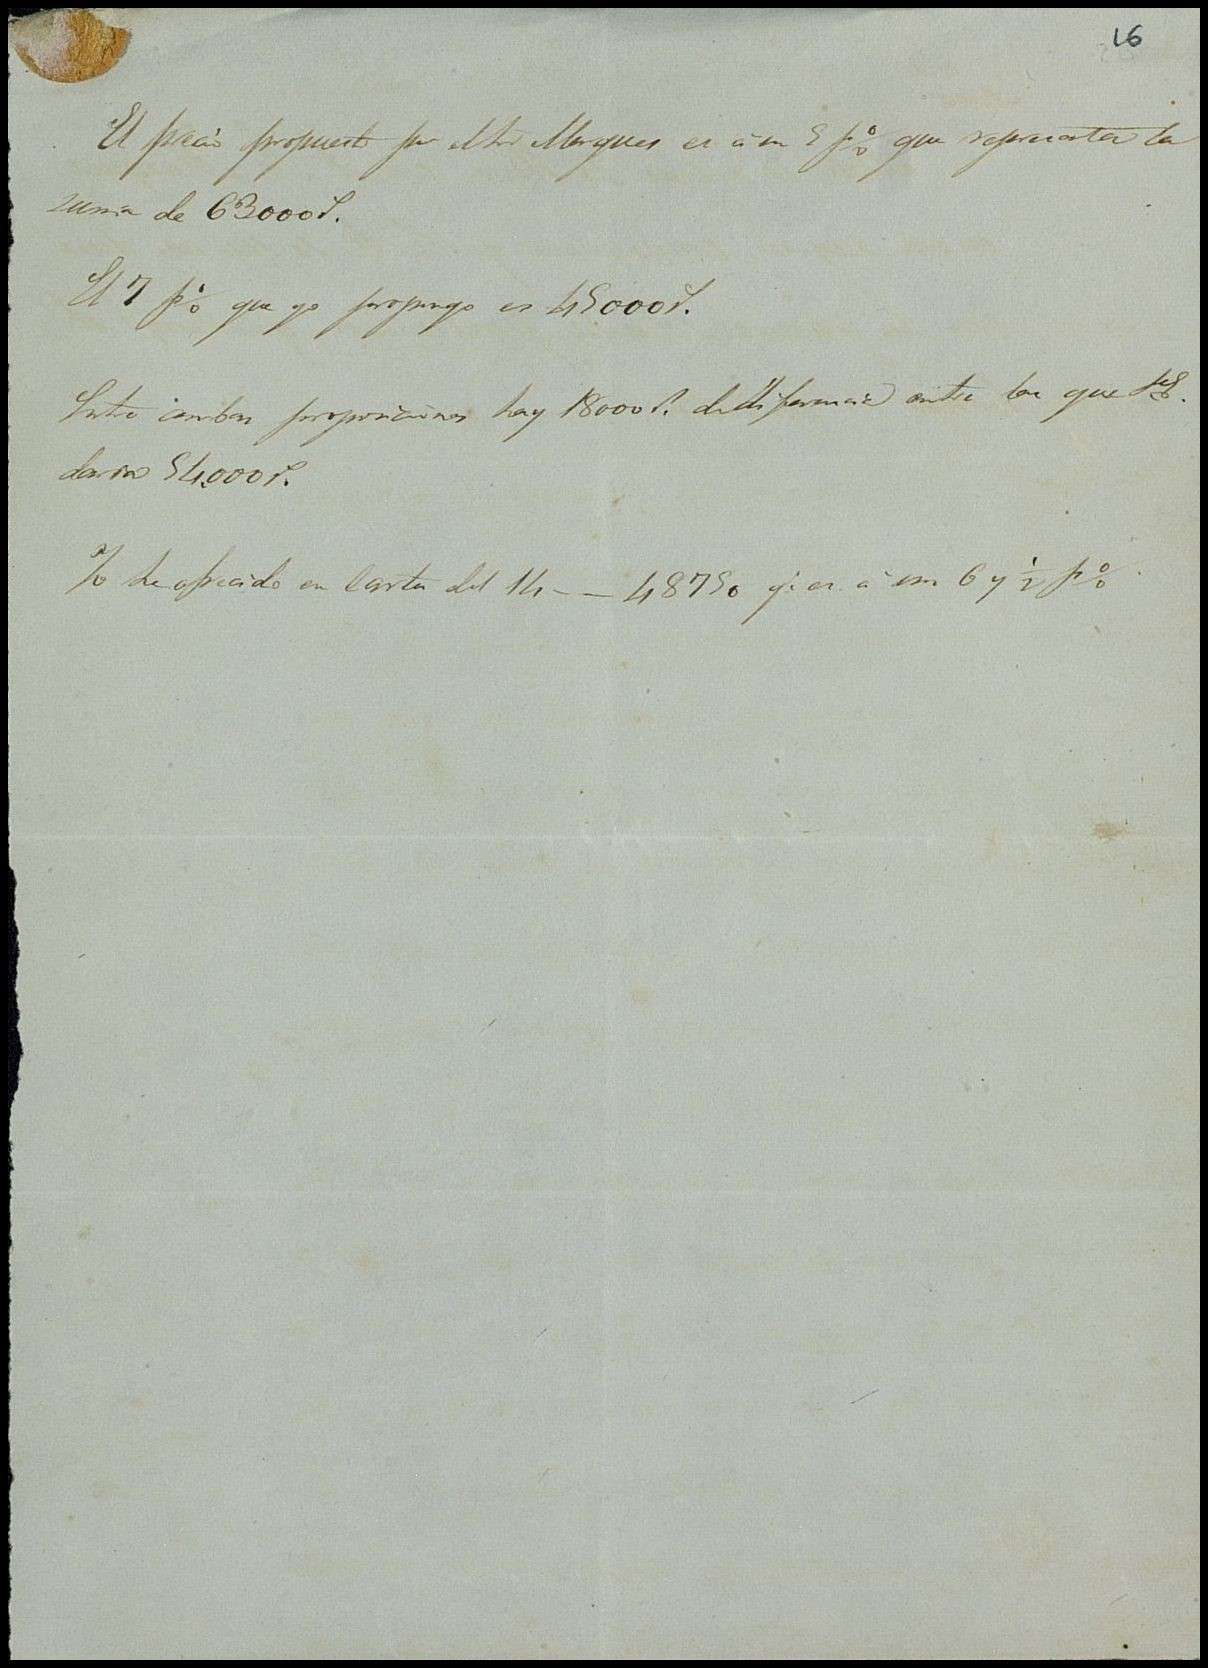 16
El precio propuesto por el Sor Marques es á un 5 p% que representa la
suma de 63000 r.
El 7 p% que yo propongo es 45000 r.
Entre ambas proposiciones hay 18000 r. de diferencia entre las que
daria 54,000 r.
Yo he ofrecido en Carta del 14 - - 48750 q.e es á un 6 y ½ p%